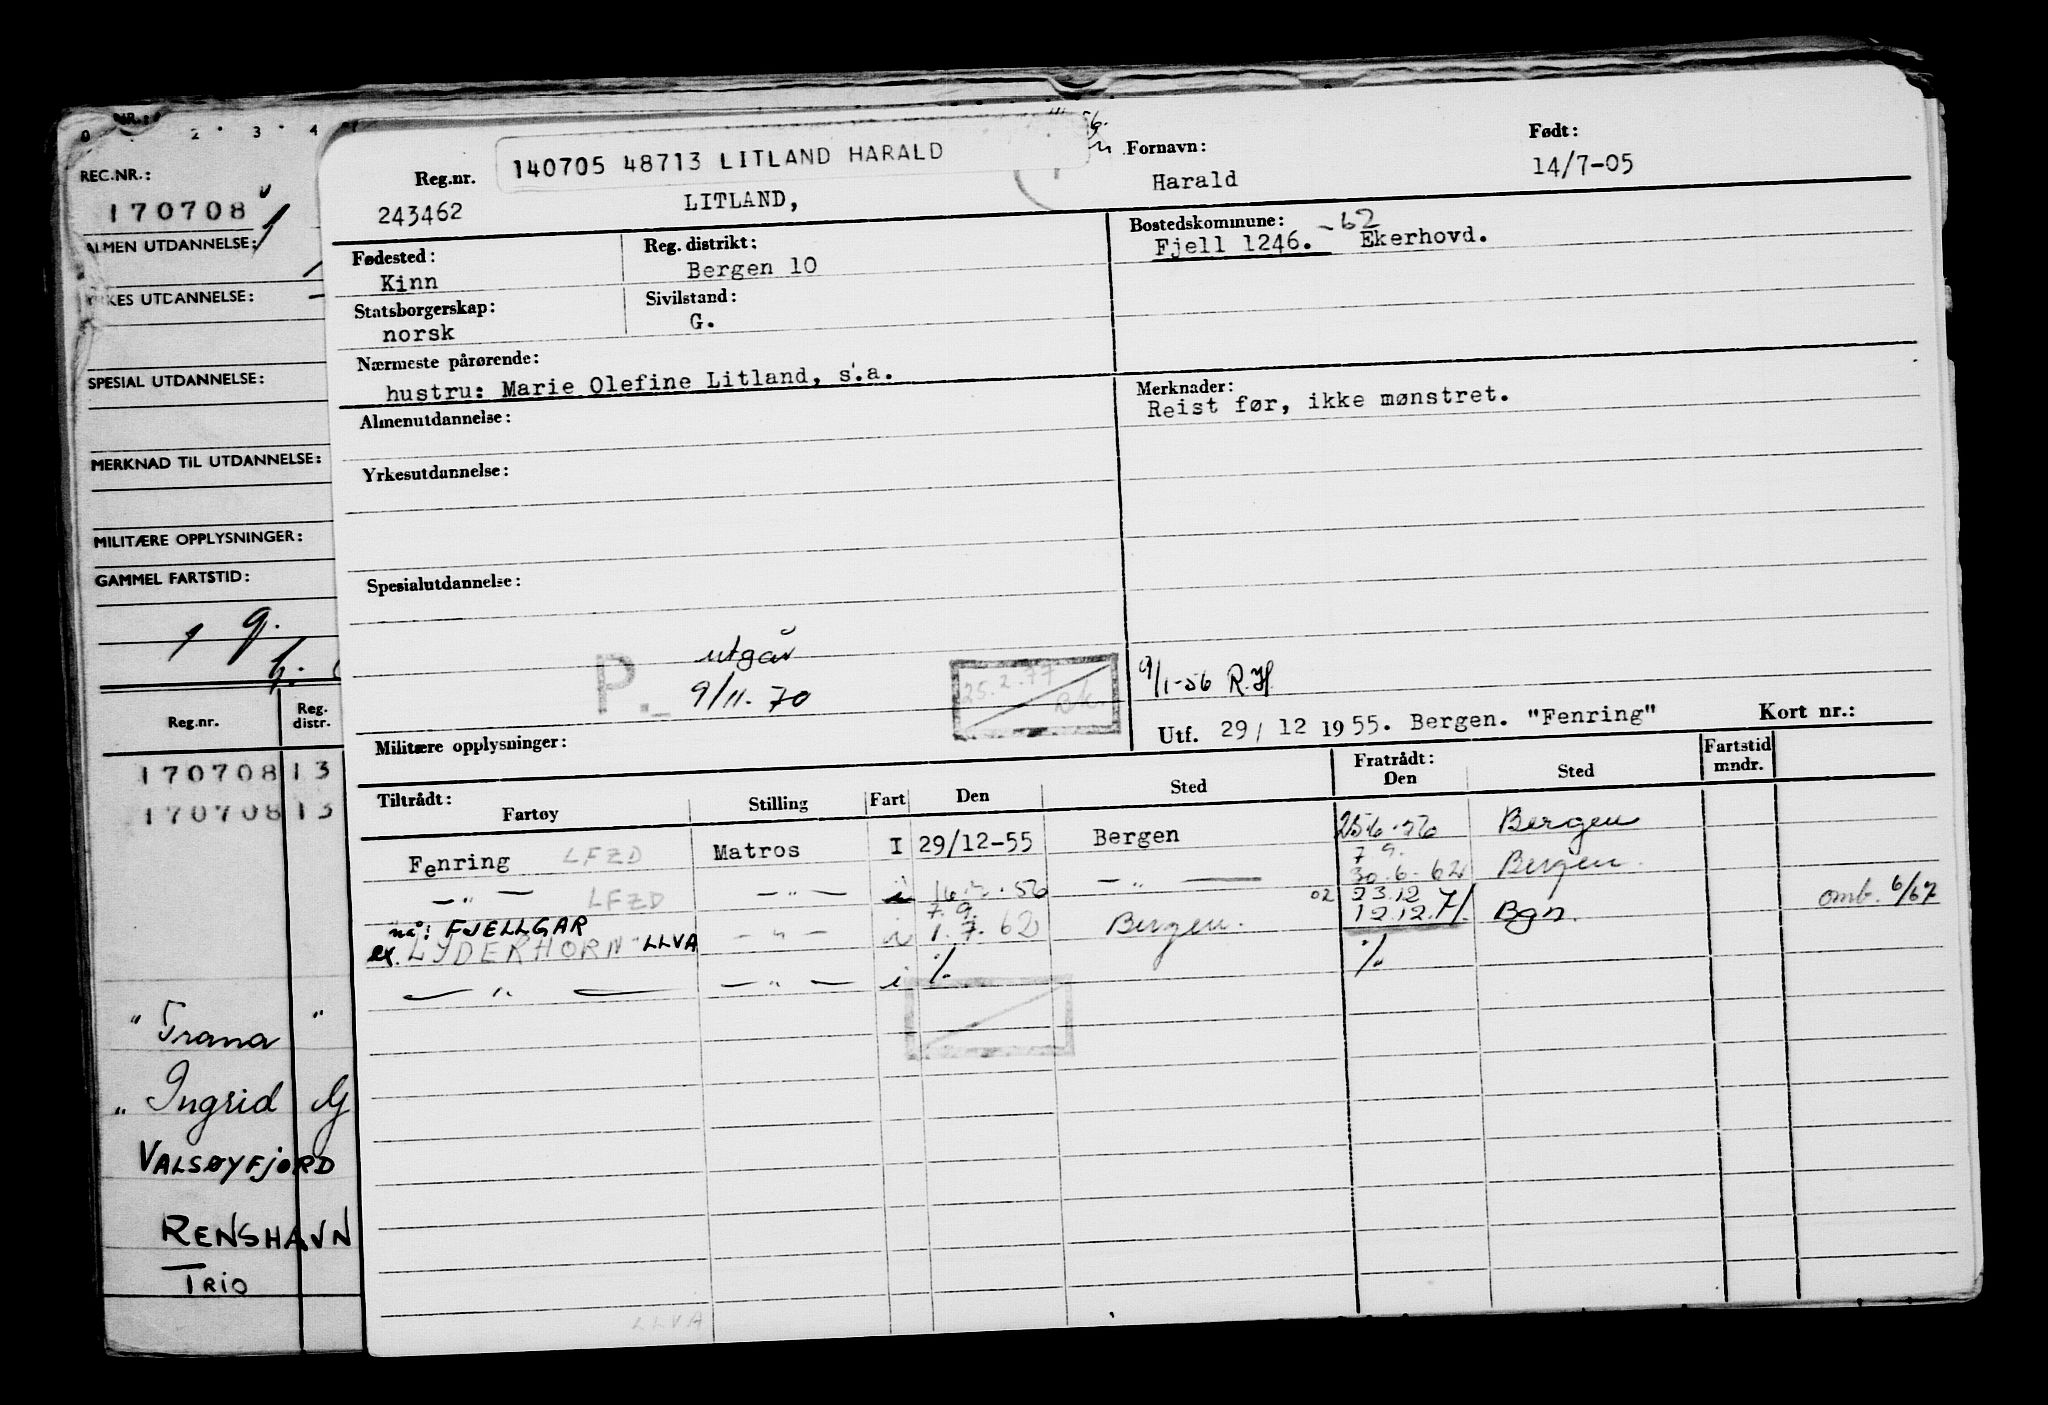 REG.NR.:
170708
ALMEN UTDANNELSE:
KES UTDANNELSE:
SPESIAL UTDANNELSE:
MERKNAD TIL UTDANNELSE:
MILITÆRE OPPLYSNINGER:
GAMMEL FARTSTID:
Reg.nr. Reg. distr.
170708 13
170708 13
" Trana "
" Ingrid
VALSØYFJORD
RENSHAVN
TRIO
140705 48713 LITLAND HARALD
Reg.nr.
243462
LITLAND,
Fornavn:
Harald
Født:
14/7-05
Fødested:
Kinn
Reg. distrikt:
Bergen 10
Bostedskommune:
Fjell 1246. -62 Ekerhovd.
Statsborgerskap:
norsk
Sivilstand:
G.
Nærmeste pårørende:
hustru: Marie Olefine Litland, s.a.
Merknader:
Reist før, ikke mønstret.
Almenutdannelse:
Yrkesutdannelse:
Spesialutdannelse:
P. utgår
9/11-70
25.2.77
Bk.
9/1-56 R.H.
Militære opplysninger:
Utf. 29/12 1955. Bergen. "Fenring" Kort nr.:
Tiltrådt:
Fartøy Stilling Fart Den Sted
Fratrådt:
Den Sted
Fartstid mndr.
Fenring LFZD Matros I 29/12-55 Bergen Bergen
- " - LFZD - " - i - " - 30.6.62 Bergen
7.9. 02 23.12
nå: FJELLGAR
ex. LYDERHORN LLVA - " - i 1.7.62 Bergen. 12.12.71. Bgn. omb. 6/67
- " - - " - i %. %.
LLVA